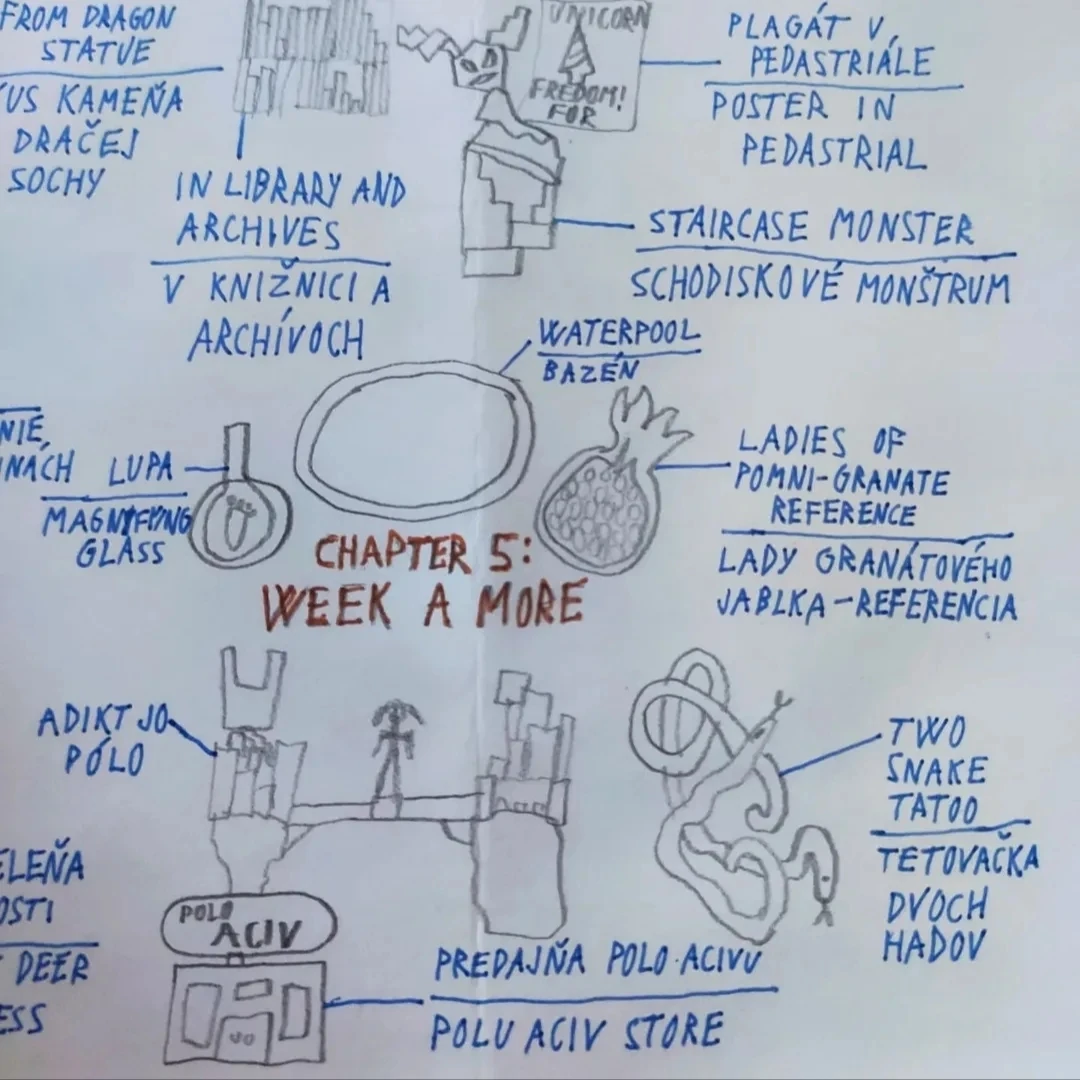 FROM DRAGON
STATUE
KAMEŇA
DRAČEJ
SOCHY
IN LIBRARY AND
ARCHIVES
V KNIŽNICI A
ARCHÍVOCH
UNICORN
FREDOM!
FOR
PLAGÁT V
PEDASTRIÁLE
POSTER IN
PEDASTRIAL
STAIRCASE MONSTER
SCHODISKOVÉ MONŠTRUM
WATERPOOL
BAZÉN
LUPA
MAGNYFYNG
GLASS
LADIES OF
POMNI-GRANATE
REFERENCE
LADY GRANÁTOVÉHO
JABLKA-REFERENCIA
CHAPTER 5:
WEEK A MORE
ADIKT JO
PÓLO
TWO
SNAKE
TATOO
TETOVAČKA
DVOCH
HADOV
DEER
POLO
ACIV
JO
PREDAJŇA POLO ACIVU
POLU ACIV STORE